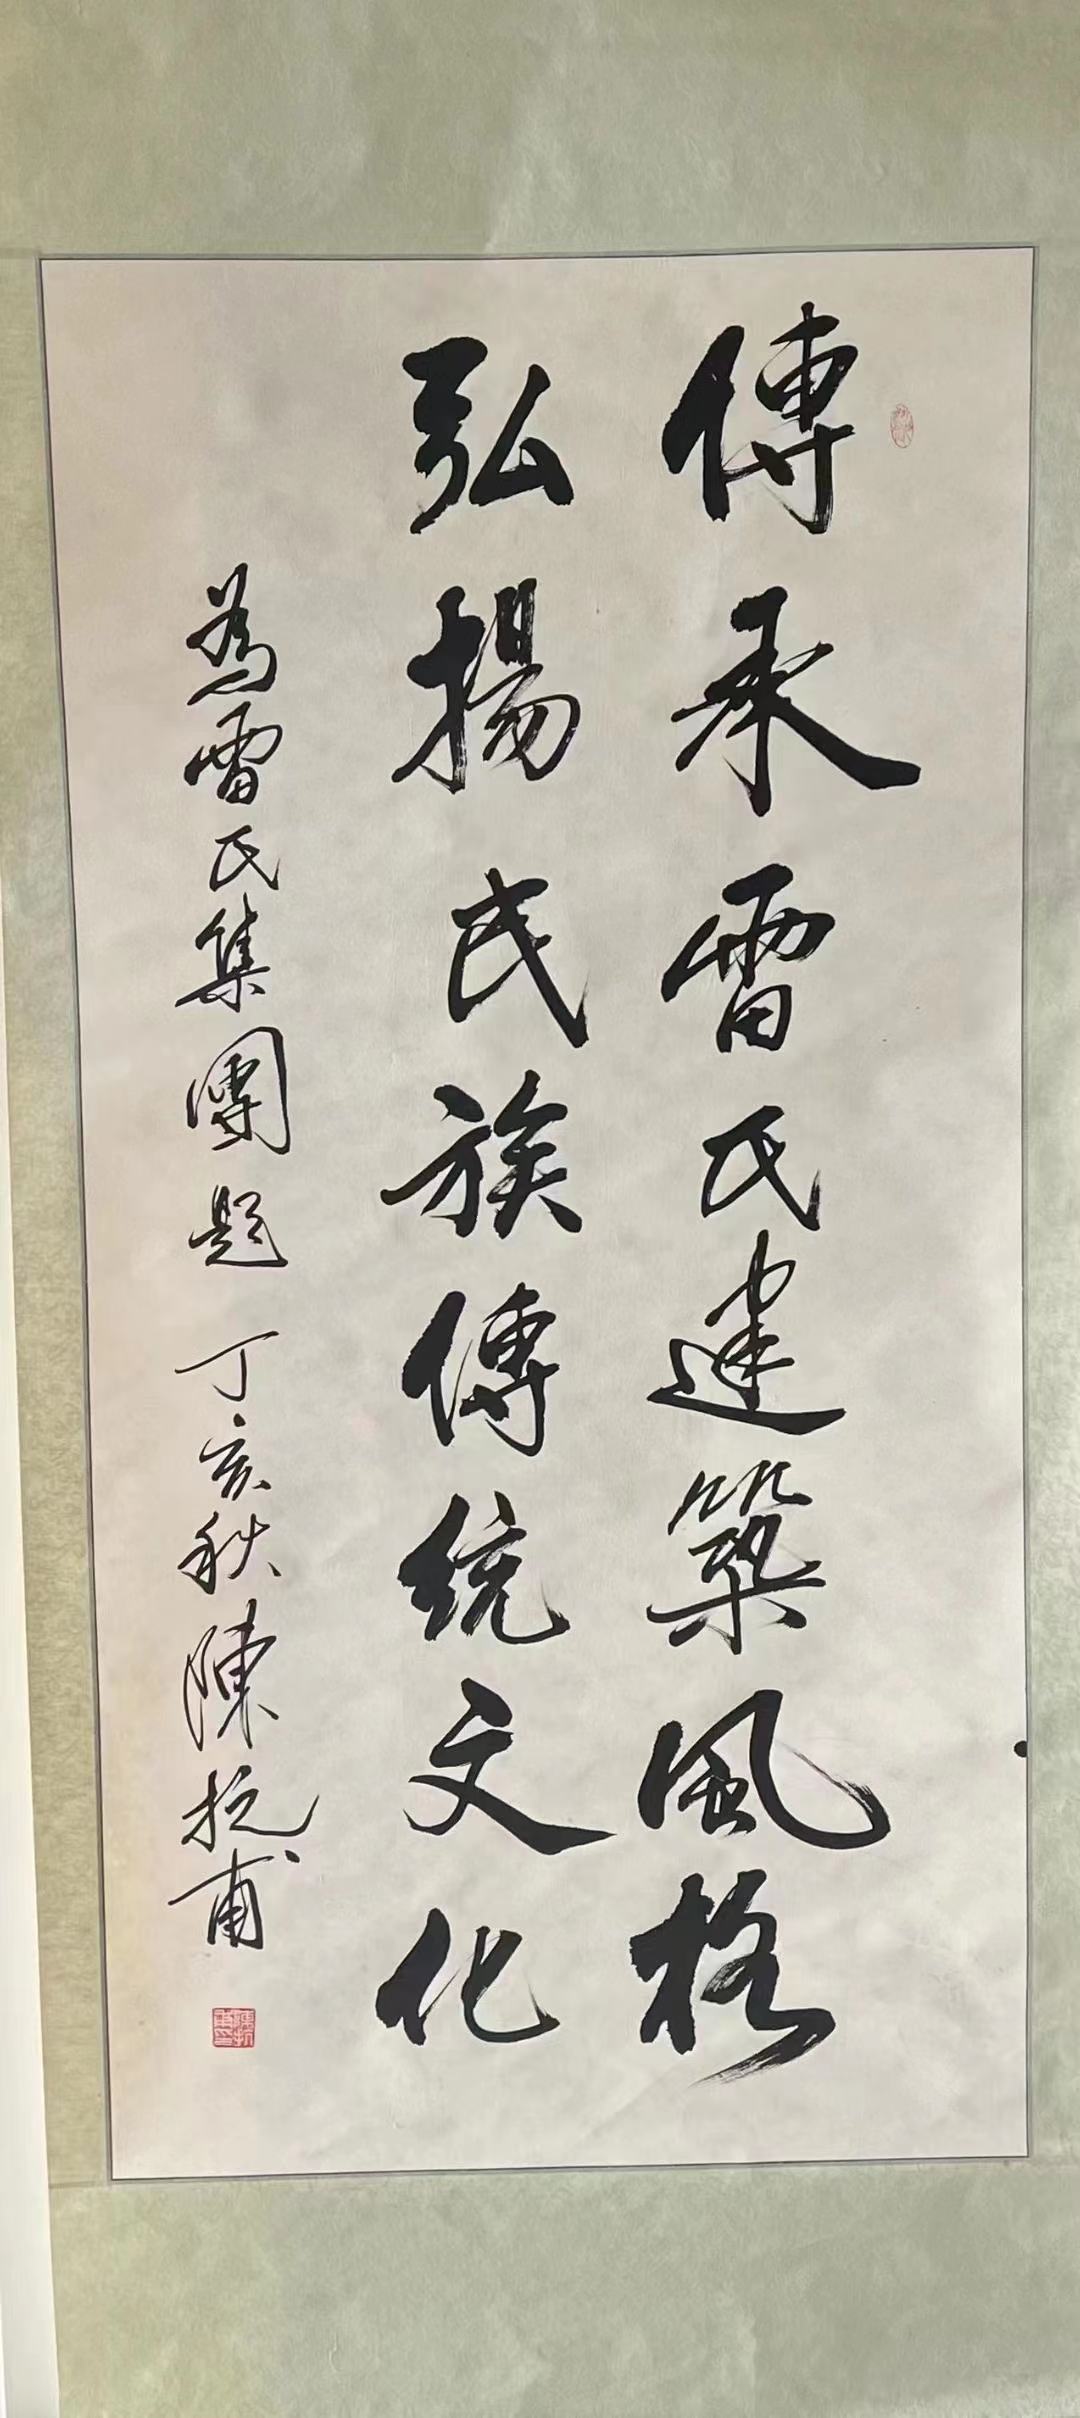 傳承雷氏建築風格
弘揚民族傳統文化
為雷氏集團題 丁亥秋陳抗甫